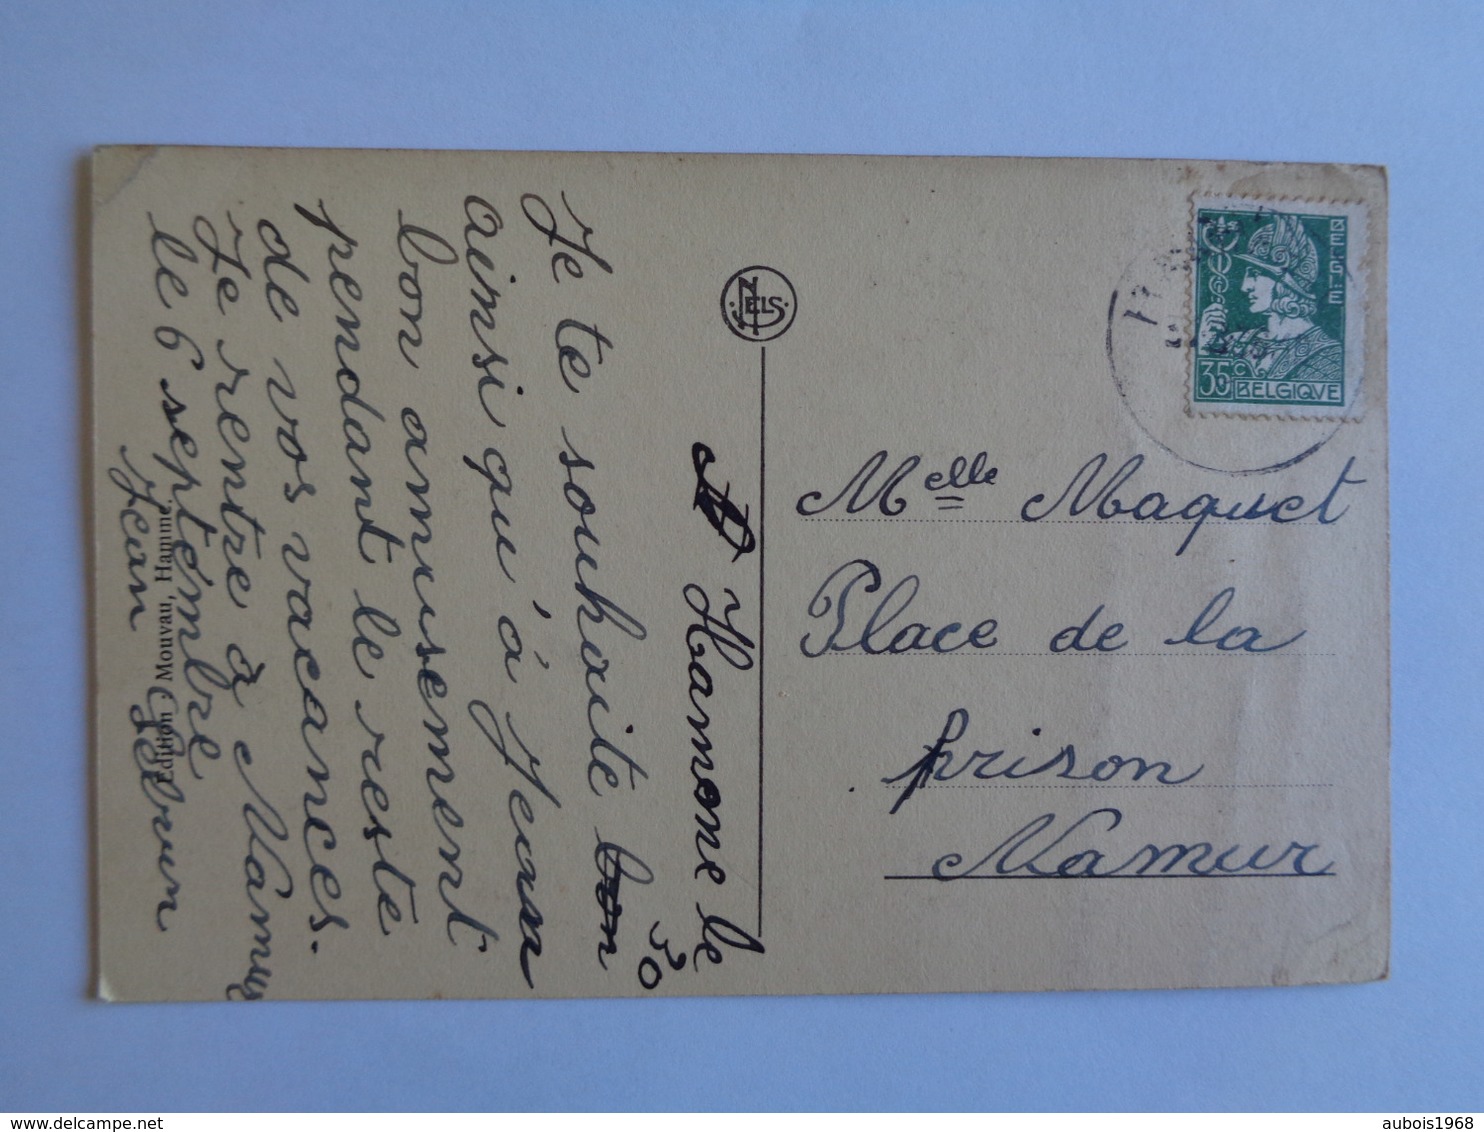 A Hamone le
30
Je te souhaite bon
ainsi qu'à Jean
bon amusement
pendant le reste
de vos vacances.
Je rentre à Namur
le 6 septembre
Jean
Edition Mouvau, Hamme
NELS
BELGIE
35c BELGIQVE
Melle Maquet
Place de la
prison
Namur
aubois1968